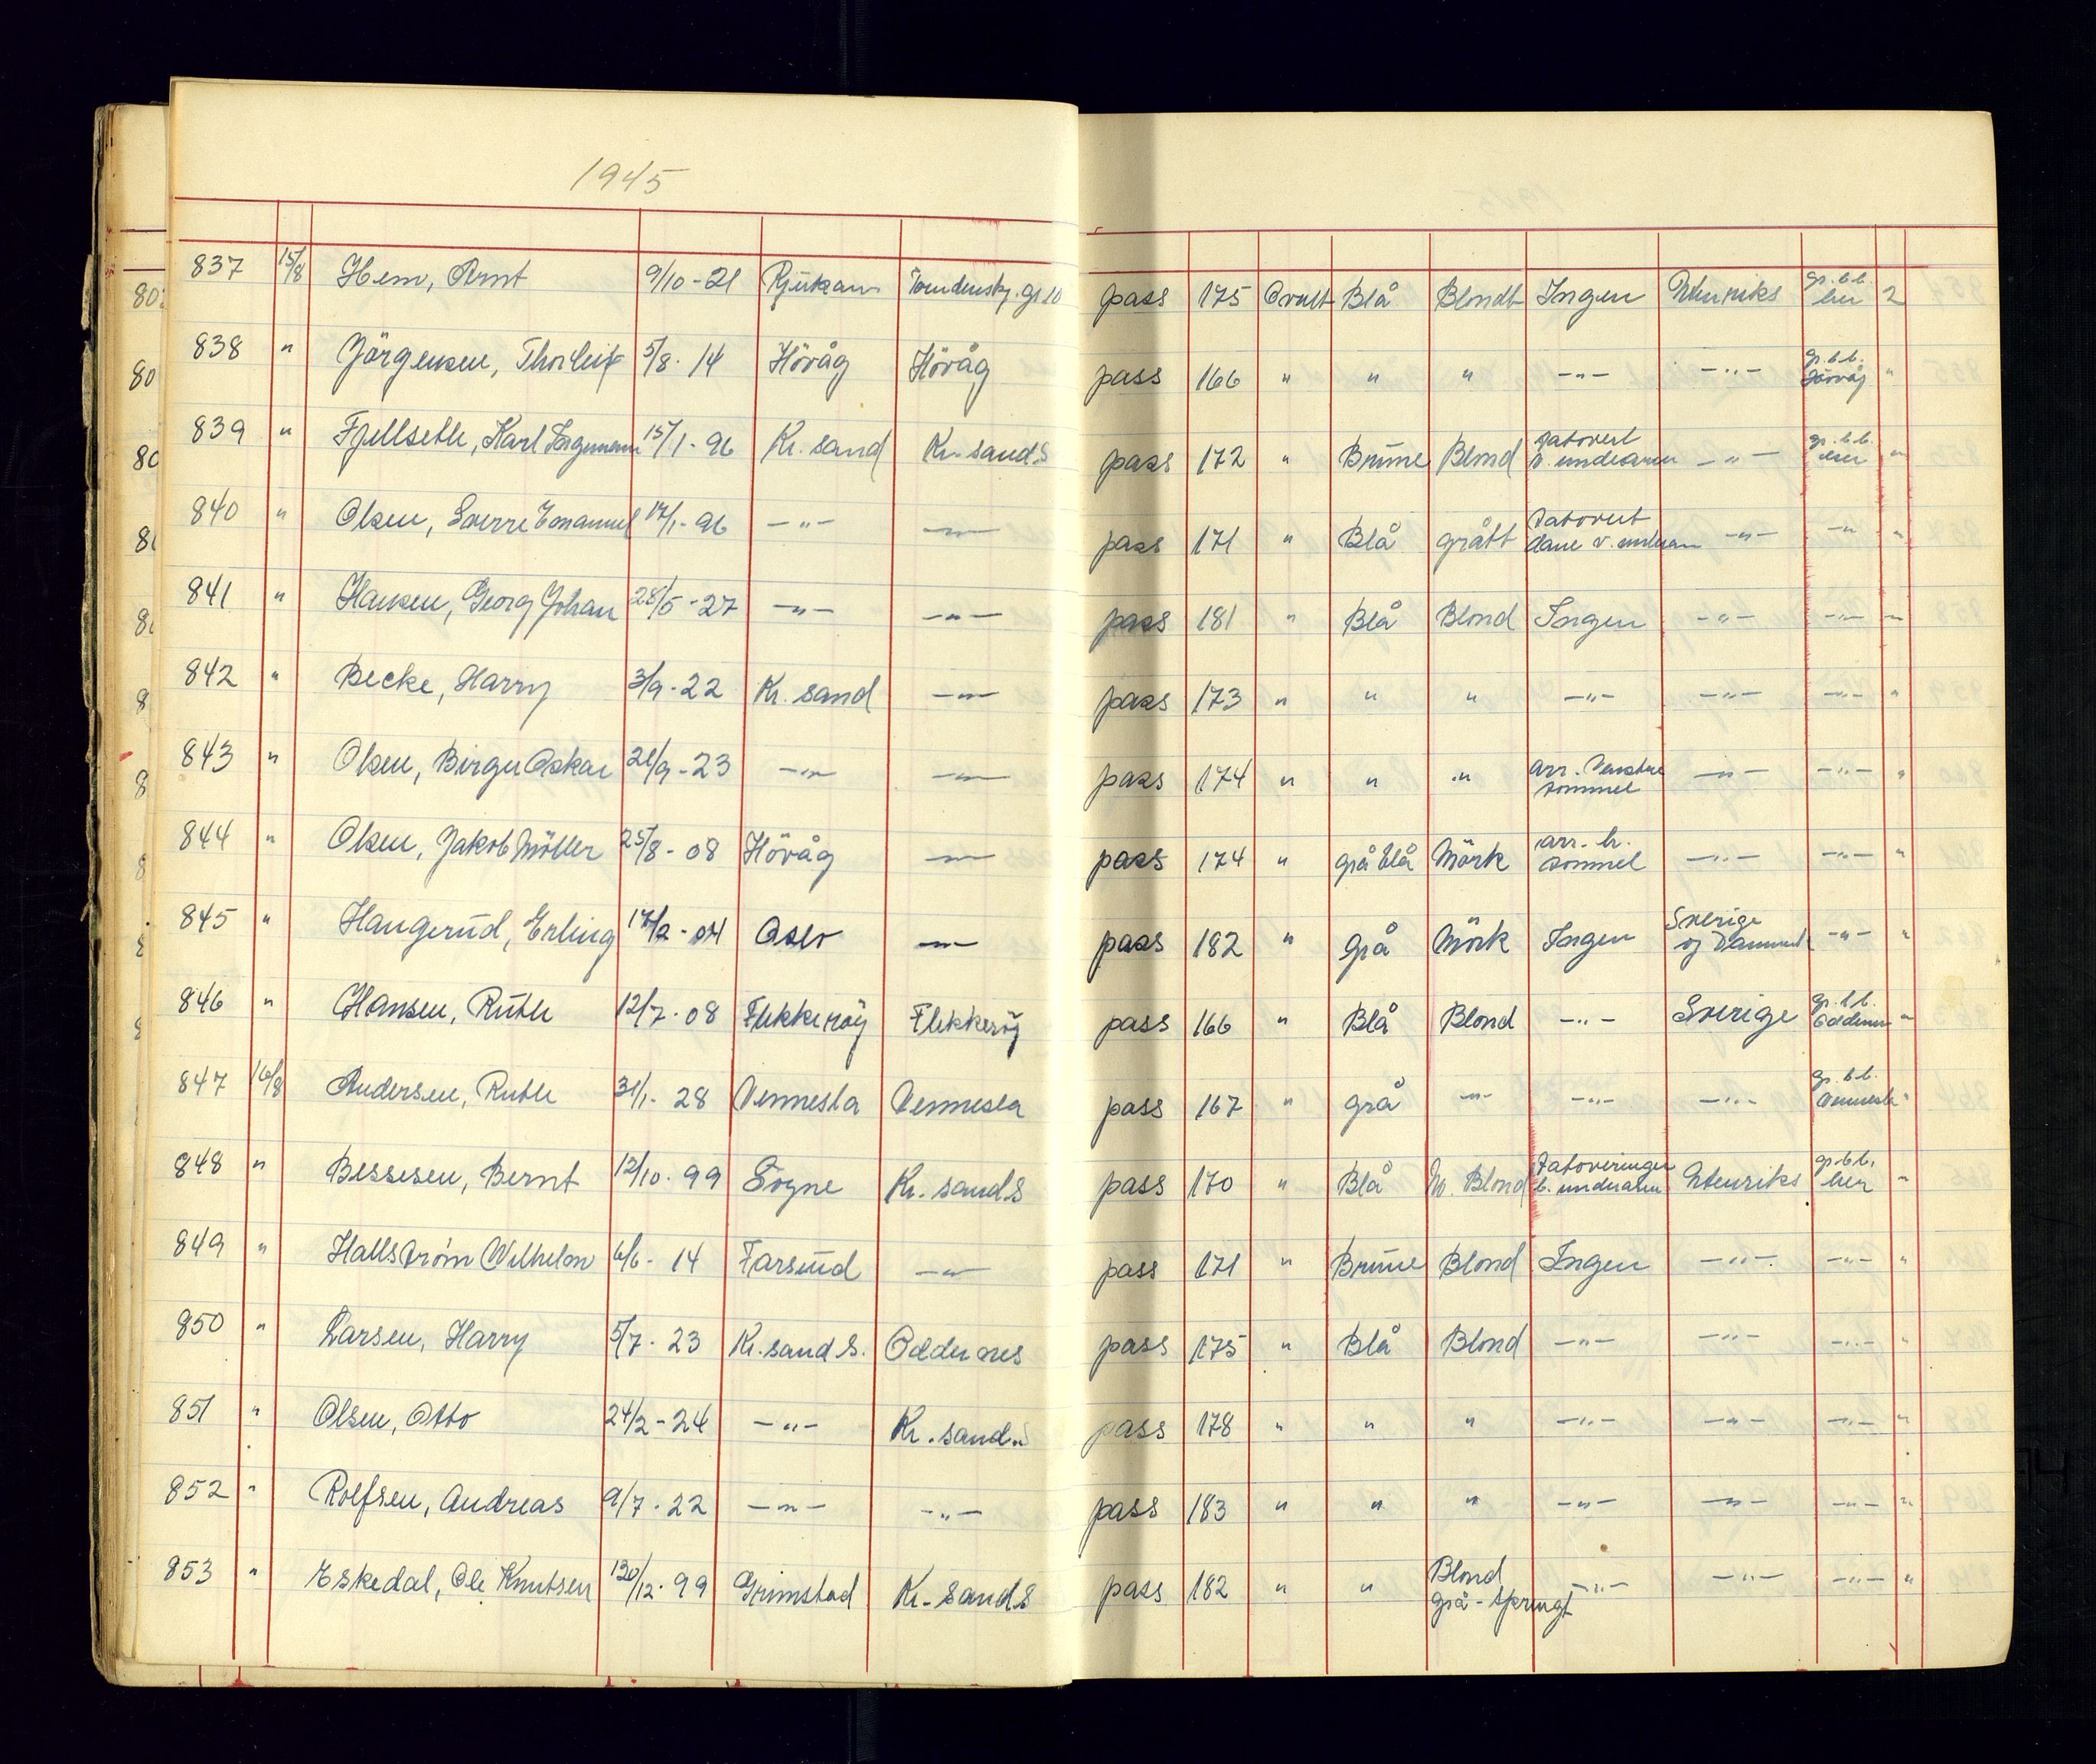 1945
837 15/8 Hem, Arnt 9/10-21 Rjukan Tordenskj. gt 10 pass 175 Ovalt Blå Blondt Ingen Utenriks gr. b.b. her 2
838 " Jörgensen, Thorleif 5/8-14 Hövåg Hövåg pass 166 " " " -"- -"- gr. b.b. Hövåg "
839 " Fjellseth, Karl 15/1-96 Kr. sand Kr. sand S pass 172 " Brune Blond Tatovert v. underarm -"- gr. b.b. her "
840 " Olsen, Sverre Emanuel 17/1-96 -"- -"- pass 171 " Blå grått Tatovert v. -"- -"- "
841 " Hansen, Georg Johan 28/5-27 -"- -"- pass 181 " Blå Blond Ingen -"- -"- "
842 " Becke, Harry 3/9-22 Kr. sand -"- pass 173 " " " -"- -"- -"- "
843 " Olsen, Birger Oskar 21/9-23 -"- -"- pass 174 " " " arr. Venstre tommel -"- -"- "
844 " Olsen, Jakob Möller 25/8-08 Hövåg -"- pass 174 " grå blå Mörk arr. h. tommel -"- -"- "
845 " Haugerud, Erling 17/2-04 Oslo -"- pass 182 " Grå Mörk Ingen Sverige og Danmark -"- "
846 " Hansen, Ruth 12/7-08 Flekkeröy Flekkeröy pass 166 " Blå Blond -"- Sverige gr. b.b. Oddernes "
847 16/8 Andersen, Ruth 31/1-28 Vennesla Vennesla pass 167 " grå -"- -"- -"- gr. b.b. Vennesla "
848 " Bessesen, Bernt 12/10-99 Sögne Kr. sand S pass 170 " Blå M. Blond Tatoveringer b. underarm Utenriks gr. b.b. her "
849 " Hallström Wilhelm 6/6-14 Farsund -"- pass 171 " Brune Blond Ingen -"- -"- "
850 " Larsen, Harry 5/7-23 Kr. sand S. Oddernes pass 175 " Blå Blond -"- -"- -"- "
851 " Olsen, Otto 24/2-24 -"- Kr. sand S pass 178 " " " -"- -"- -"- "
852 " Rolfsen, Andreas 9/7-22 -"- -"- pass 183 " " " -"- -"- -"- "
853 " Eskedal, Ole Knutsen 30/12-99 Grimstad Kr. sand S pass 182 " " Blond grå-sprengt -"- -"- -"- "